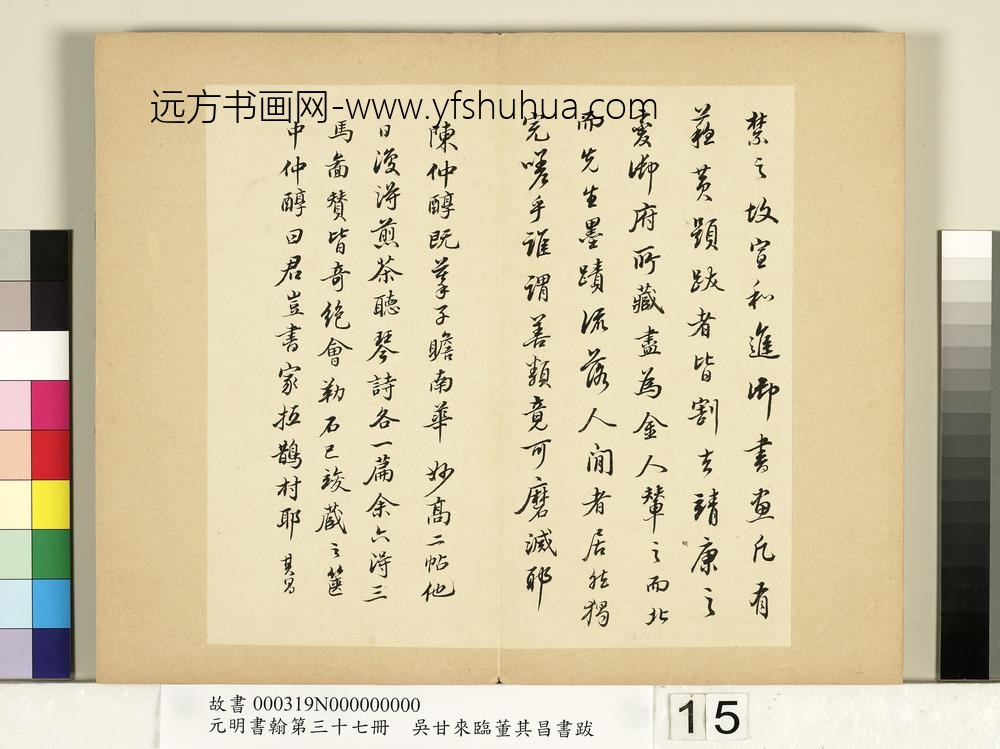 远方书画网-www.yfshuhua.com
禁之故宣和進御書畫凡有
蘇黃題跋者皆割去靖康之
變御府所藏盡為金人輦之而北
而先生墨蹟流落人間者居然獨
完嗟乎誰謂善類竟可磨滅耶
陳仲醇既摹子瞻南華 妙高二帖他
日復得煎茶聽琴詩各一篇余亦得三
馬圖贊皆奇絕會勒石已竣藏之篋
中仲醇曰君豈書家抵鵲村耶 其昌
故書 000319N000000000
元明書翰第三十七冊 吳甘來臨董其昌書跋
15